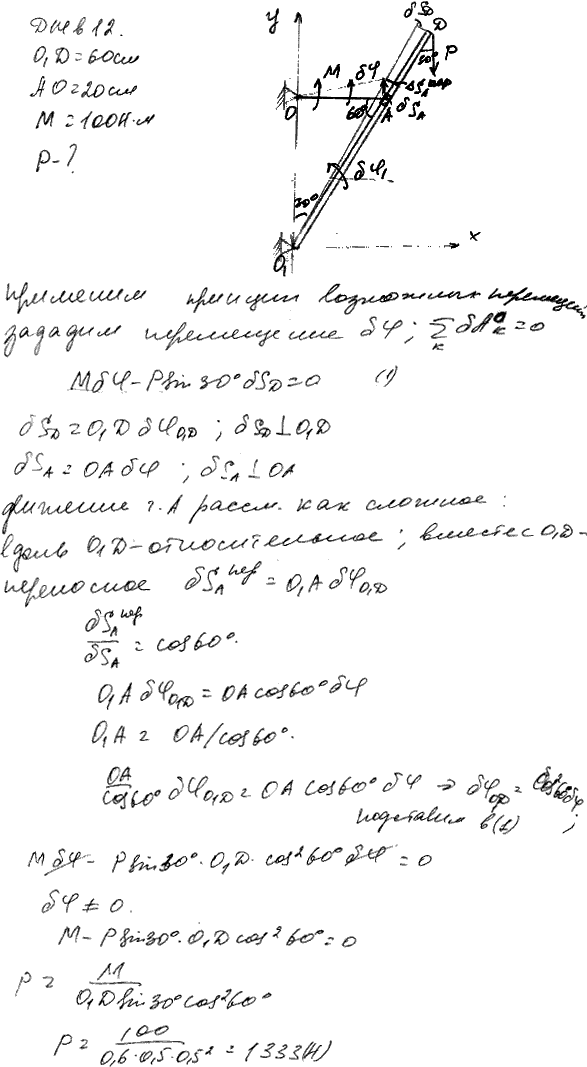 y
δS_D
D
Дин в 12.
O₁D=60см
AO=20см
M=100Н·м
P-?
M
δφ
30°
P
δS_A^пер
O
60°
A
δS_A
δφ₁
30°
x
O₁
применим принцип возможных перемещений
зададим перемещение δφ; Σ_k δA_k^a=0
Mδφ-Psin30°δS_D=0 (1)
δS_D=O₁Dδφ_O₁D; δS_D⊥O₁D
δS_A=OAδφ; δS_A⊥OA
движение т.A рассм. как сложное:
вдоль O₁D-относительное; вместе с O₁D-
переносное δS_A^пер=O₁Aδφ_O₁D
δS_A^пер/δS_A=cos60°.
O₁Aδφ_O₁D=OAcos60°δφ
O₁A=OA/cos60°.
OA/cos60° δφ_O₁D=OAcos60°δφ → δφ_O₁D=cos²60°δφ
подставим в(1) ;
Mδφ-Psin30°·O₁D·cos²60°δφ=0
δφ≠0.
M-Psin30°·O₁Dcos²60°=0
P=M/O₁Dsin30°cos²60°
P=100/0,6·0,5·0,5²=1333(Н)